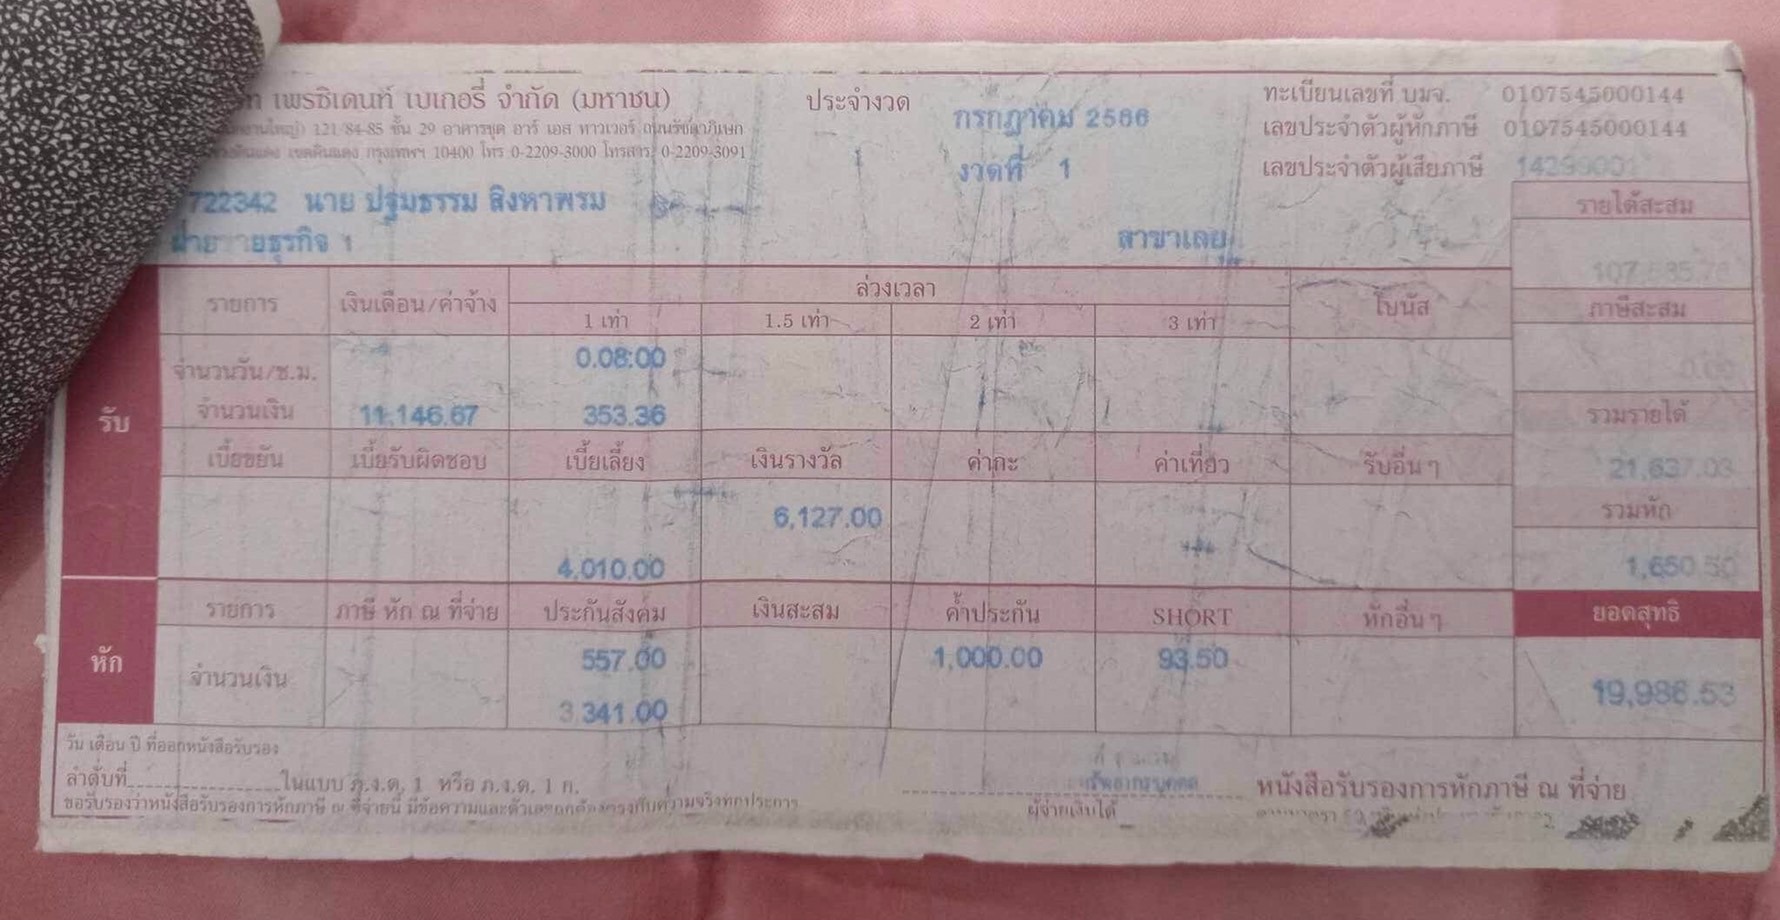 เพรซิเดนท์ เบเกอรี่ จำกัด (มหาชน)
121/84-85 ชั้น 29 อาคารชุด อาร์ เอส ทาวเวอร์ ถนนรัชดาภิเษก
เขตดินแดง กรุงเทพฯ 10400 โทร 0-2209-3000 โทรสาร 0-2209-3091
ประจำงวด กรกฎาคม 2566
งวดที่ 1
ทะเบียนเลขที่ บมจ. 0107545000144
เลขประจำตัวผู้หักภาษี 0107545000144
เลขประจำตัวผู้เสียภาษี
722342 นาย ปฐมธรรม สิงหาพรม
ฝ่ายขายธุรกิจ 1 สาขาเลย
รายได้สะสม
รายการ เงินเดือน/ค่าจ้าง ล่วงเวลา โบนัส ภาษีสะสม
1 เท่า 1.5 เท่า 2 เท่า 3 เท่า
รับ
จำนวนวัน/ช.ม. 0.08:00 0.00
จำนวนเงิน 11,146.67 353.36 รวมรายได้
เบี้ยขยัน เบี้ยรับผิดชอบ เบี้ยเลี้ยง เงินรางวัล ค่ากะ ค่าเที่ยว รับอื่นๆ 21,637.03
6,127.00 รวมหัก
4,010.00 1,650.50
หัก
รายการ ภาษี หัก ณ ที่จ่าย ประกันสังคม เงินสะสม ค้ำประกัน SHORT หักอื่นๆ ยอดสุทธิ
จำนวนเงิน 557.00 1,000.00 93.50 19,986.53
3,341.00
วัน เดือน ปี ที่ออกหนังสือรับรอง
ลำดับที่ ในแบบ ภ.ง.ด. 1 หรือ ภ.ง.ด. 1 ก. หนังสือรับรองการหักภาษี ณ ที่จ่าย
ขอรับรองว่าหนังสือรับรองการหักภาษี ณ ที่จ่ายนี้ มีข้อความและตัวเลขถูกต้องตรงกับความจริงทุกประการ ผู้จ่ายเงินได้